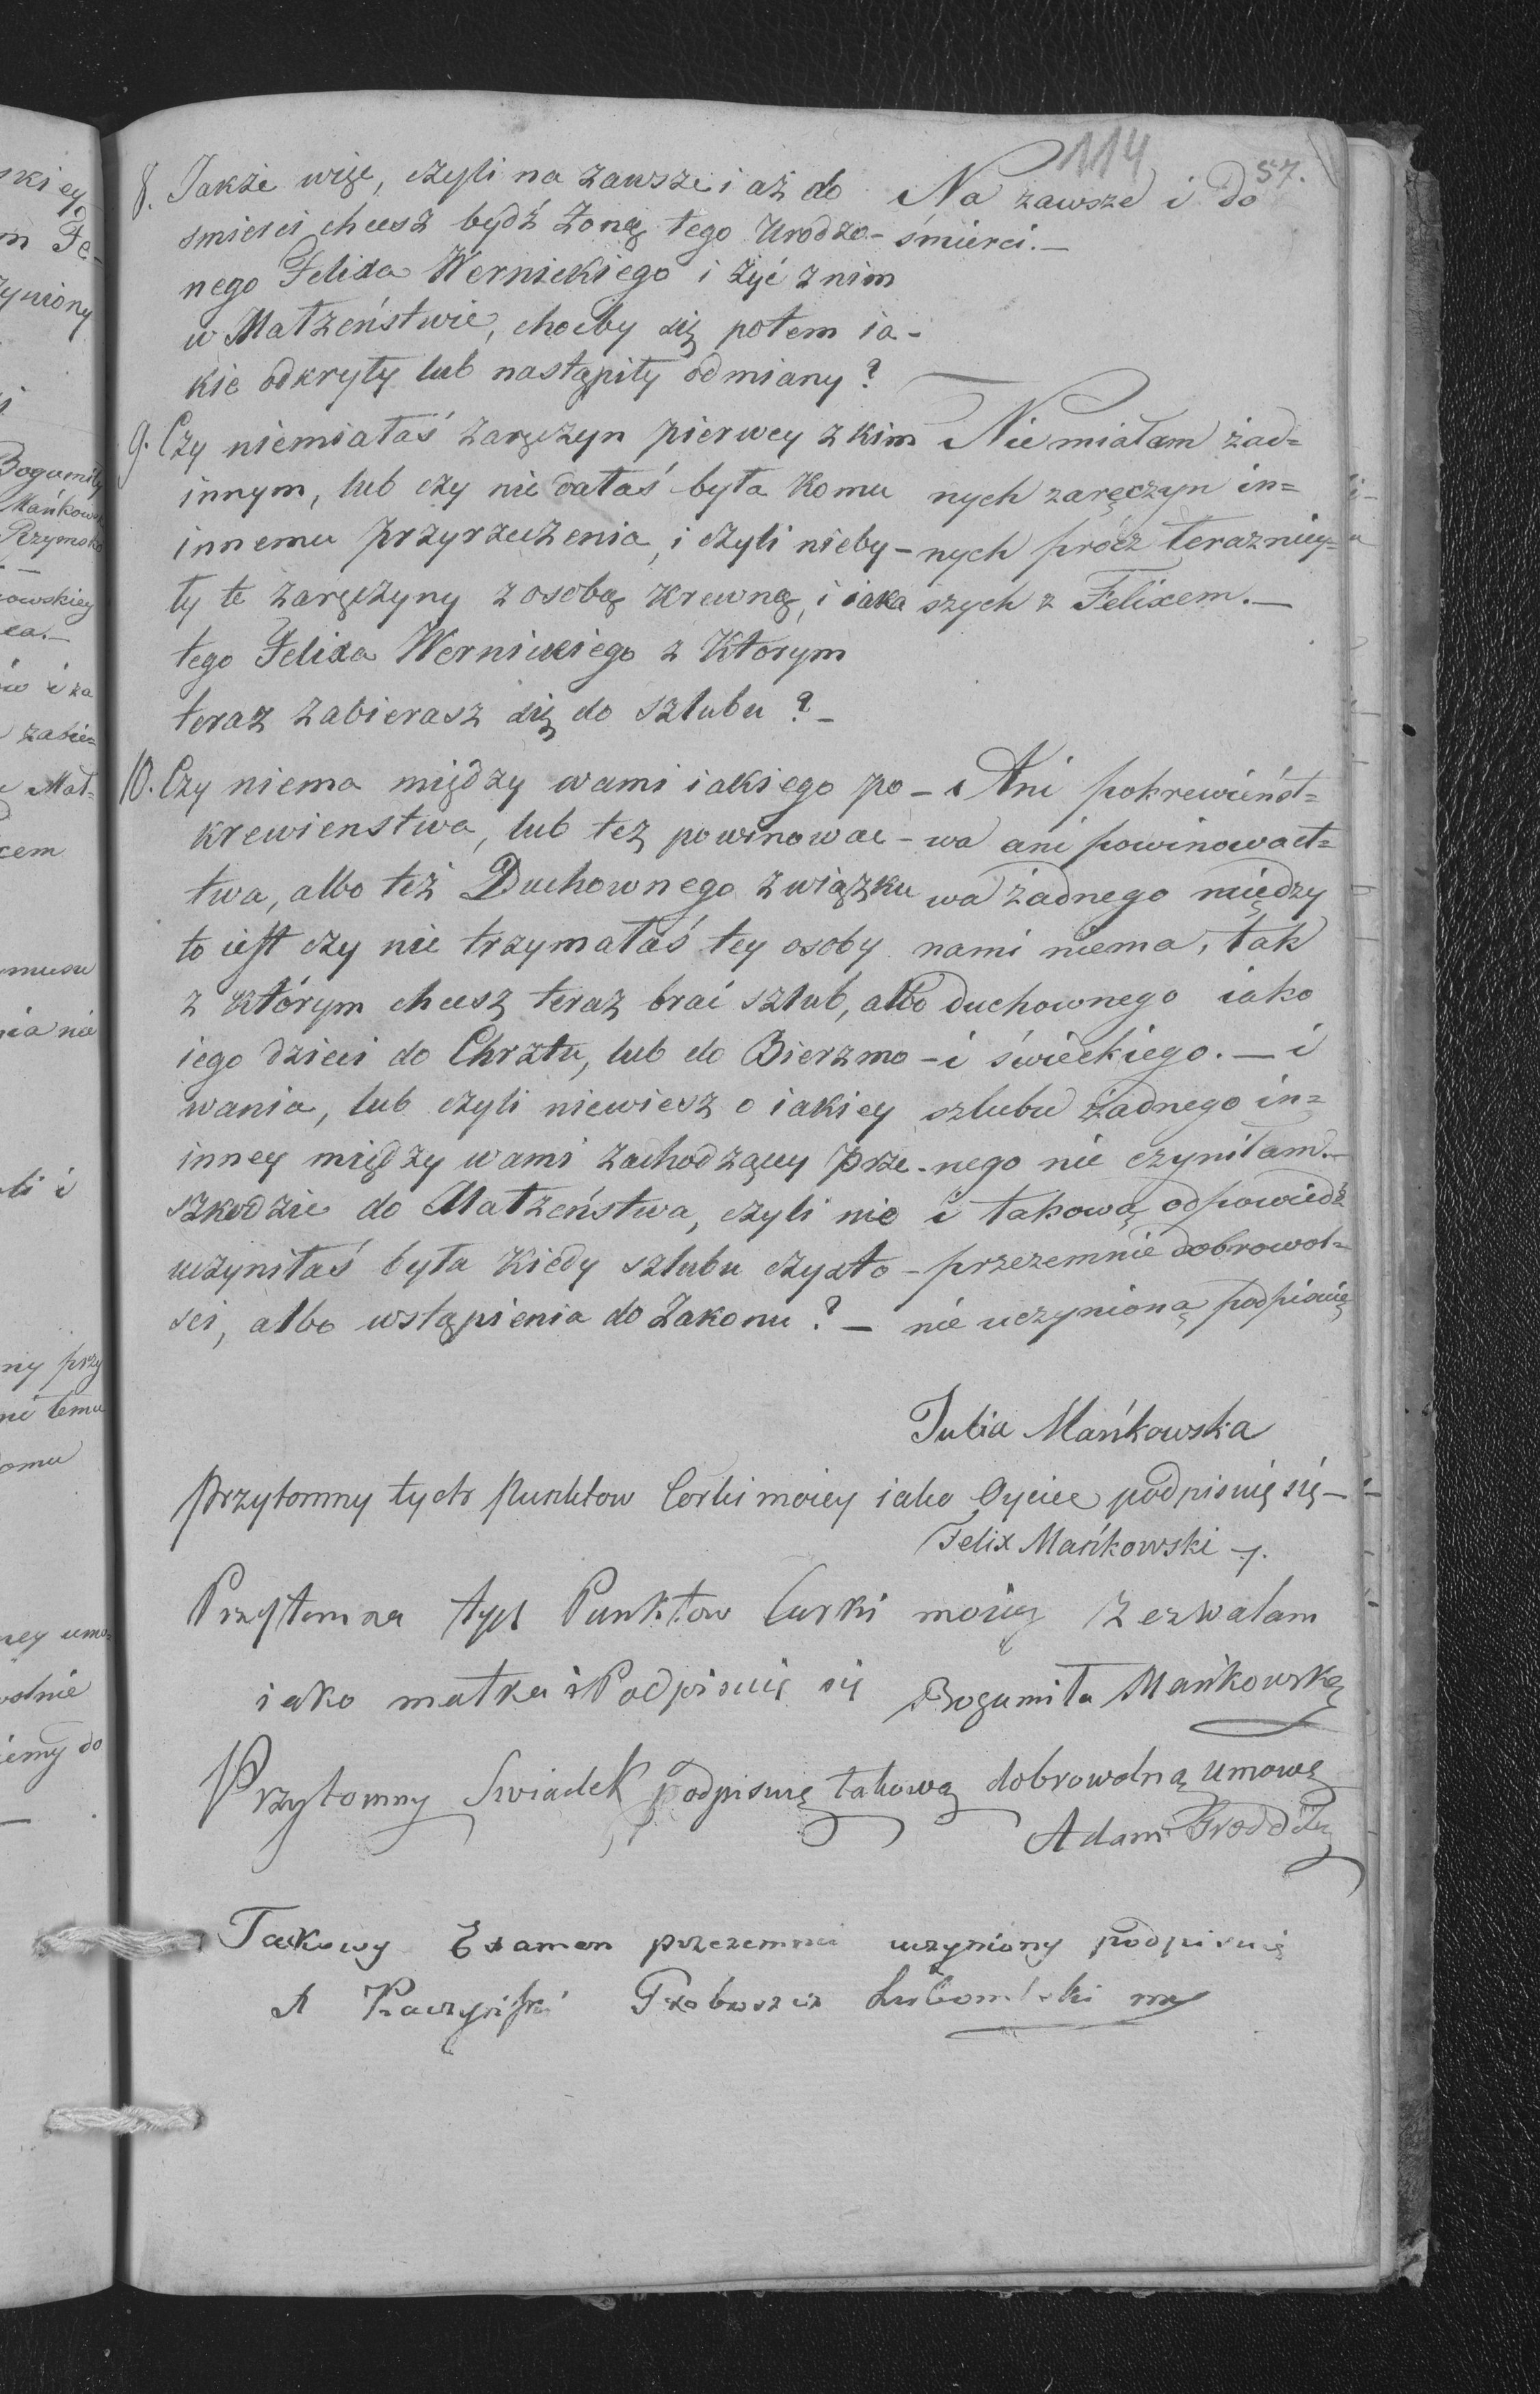 114
57.
8. Jakże więc, czyli na zawsze i aż do
smierci chcesz bydź Żoną tego Urodzo-
nego Felixa Wernickiego i żyć z nim
w Małżeństwie, choćby się potem ia-
kie odkryły lub nastąpiły odmiany?
Na zawsze i do
śmierci. —
9. Czy niemiałaś zaręczyn pierwey z kim
innym, lub czy nie dałaś była komu
innemu przyrzeczenia, i czyli nieby-
ły te zaręczyny z osobą krewną, i iaka
tego Felixa Wernickiego z ktorym
teraz zabierasz się do szlubu? —
Nie miałam żad=
nych zaręczyn in=
nych prócz terazniey=
szych z Felixem. —
10. Czy niema między wami iakiego po-
krewienstwa, lub też powinowac-
twa, albo też Duchownego związku
to iest czy nie trzymałaś tey osoby
z którym chcesz teraz brać szlub, albo
iego dzieci do Chrztu, lub do Bierzmo-
wania, lub czyli niewiesz o iakiey
inney między wami zachodzącey prze-
szkodzie do Małżeństwa, czyli nie
uczyniłaś była kiedy szlubu czysto-
sci, albo wstąpienia do Zakonu? —
Ani pokrewieńst=
wa ani powinowact=
wa żadnego między
nami niema, tak
duchownego iako
i świeckiego. — i
szlubu żadnego in=
nego nie czyniłam. —
i takową odpowiedź
przezemnie dobrowol=
nie uczynioną podpisuię
Julia Mańkowska
Przytomny tych Punktow Corki moiey iako Oyciec podpisuię się —
Felix Mańkowski
Przytomna tych Punktow Curki moiey Zezwalam
iako matka i Podpisuię się Bogumiła Mańkowska
Przytomny Swiadek podpisuię takową dobrowolną umowę
Adam
Takowy Examen przezemnie uczyniony podpisuię
A Proboszcz